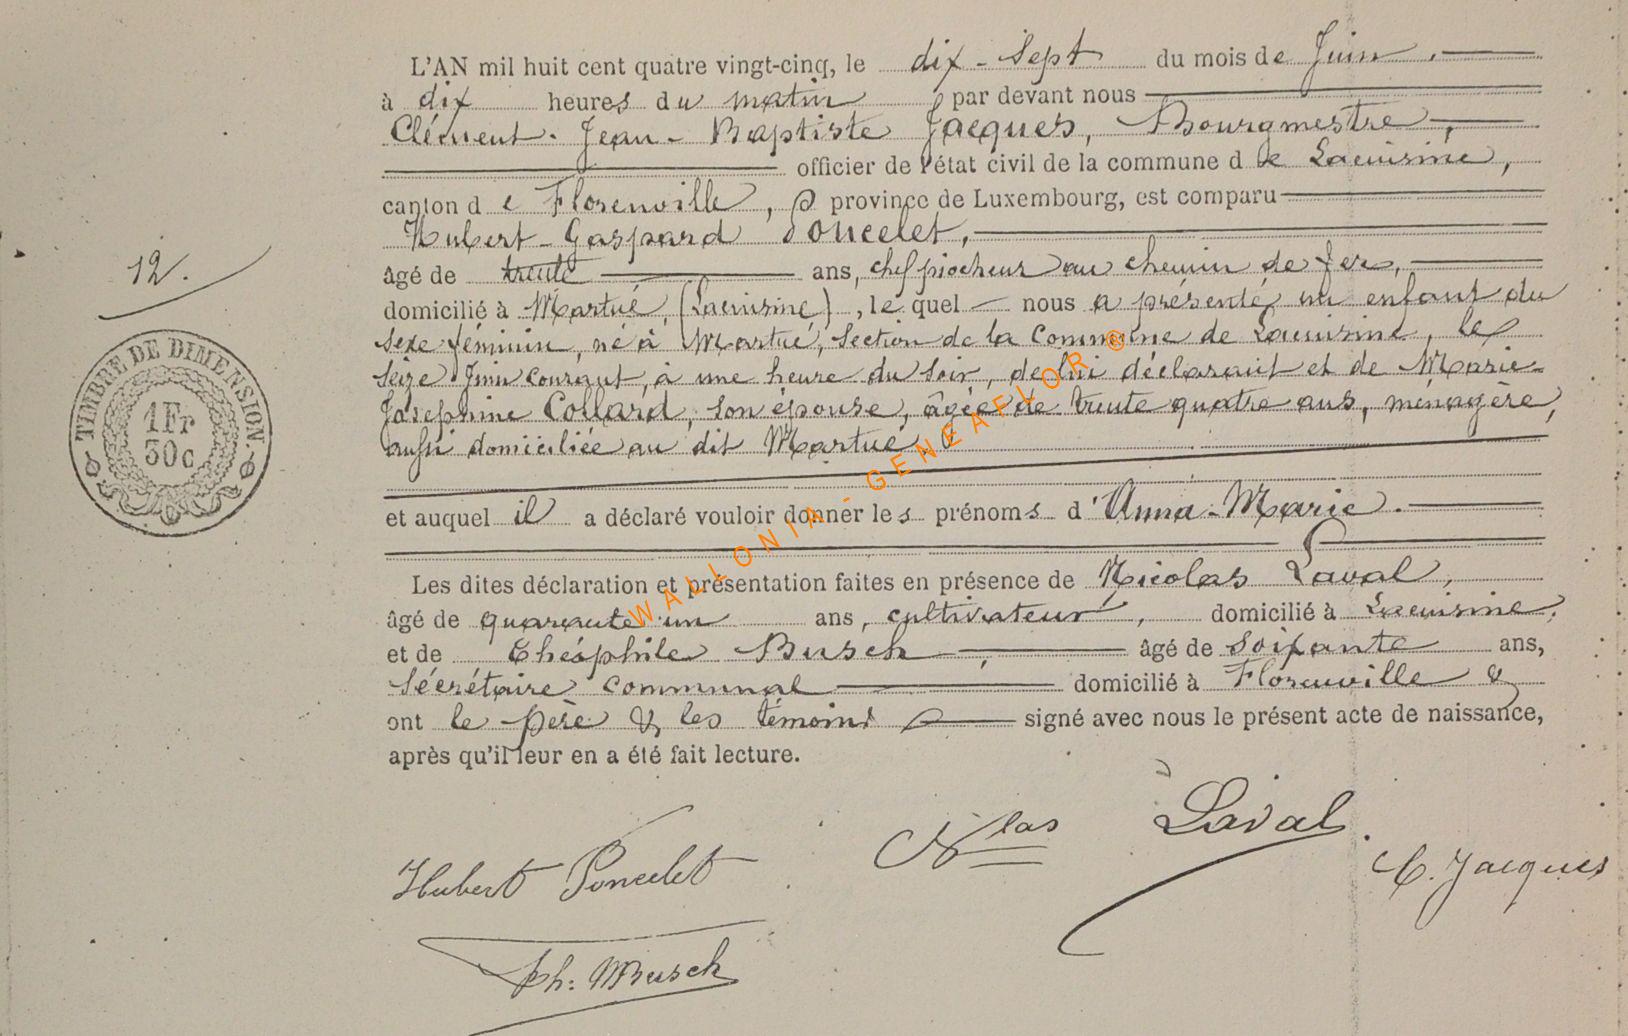 L'AN mil huit cent quatre vingt-cinq, le dix-Sept du mois de Juin.
à dix heures du matin par devant nous
Clément-Jean-Baptiste Jacques, Bourgmestre,
officier de l'état civil de la commune de Lacuisine,
canton de Florenville, province de Luxembourg, est comparu
Hubert-Gaspard Poncelet,
âgé de trente ans, chef piocheur au chemin de fer,
domicilié à Martué, (Lacuisine), lequel nous a présenté un enfant du
sexe féminin, né à Martué, Section de la Commune de Lacuisine, le
seize Juin courant, à une heure du soir, de lui déclarant et de Marie-
Joséphine Collard, son épouse, âgée de trente quatre ans, ménagère,
aussi domiciliée au dit Martué.
et auquel il a déclaré vouloir donner les prénoms d'Anna-Marie.
Les dites déclaration et présentation faites en présence de Nicolas Laval,
âgé de quarante un ans, cultivateur, domicilié à Lacuisine,
et de Théophile Busch, âgé de soixante ans,
Sécrétaire communal domicilié à Florenville &
ont le père & les témoins signé avec nous le présent acte de naissance,
après qu'il leur en a été fait lecture.
12.
TIMBRE DE DIMENSION
1 Fr
30 c
WALLONIA - GENEAFLOR ®
Nlas Laval.
Hubert Poncelet
C. Jacques
Th: Busch